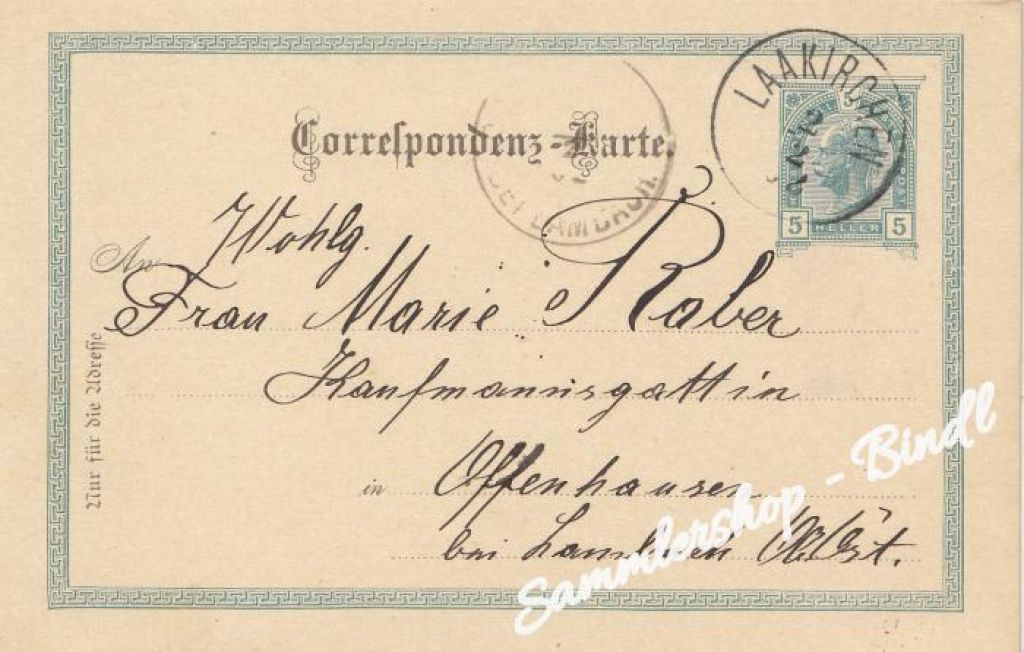 LAAKIRCHEN
Correspondenz-Karte.
5 HELLER 5
Wohlg.
An
Frau Marie Raber
Kaufmannsgattin
in Offenhausen
bei Lambach Ob.Öst.
Nur für die Adresse
BEI LAMBACH
Sammlershop - Bindl